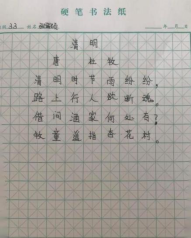 硬笔书法纸
33
年 月 日
清明
唐 杜牧
清明时节雨纷纷,
路上行人欲断魂。
借问酒家何处有?
牧童遥指杏花村